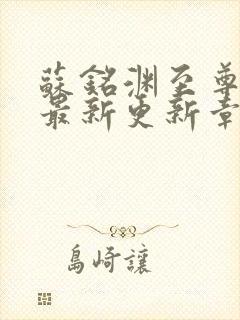 蘇銘渊至尊
最新更新章
島崎讓